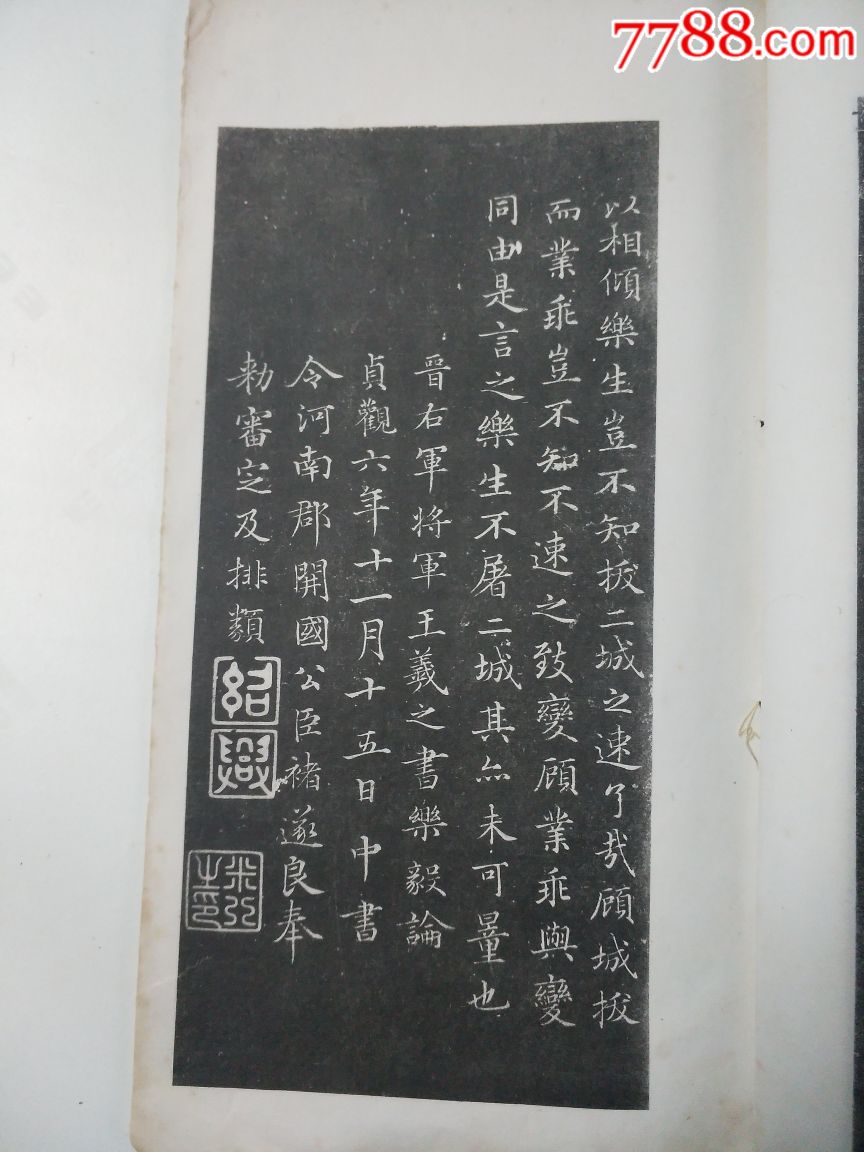 7788.com
以相傾樂生豈不知拔二城之速了㢤顧城拔
而業乖豈不知不速之致變顧業乖與變
同由是言之樂生不屠二城其亦未可量也
晉右軍將軍王羲之書樂毅論
貞觀六年十一月十五日中書
令河南郡開國公臣褚遂良奉
勑審定及排類
紹興
米芾之印